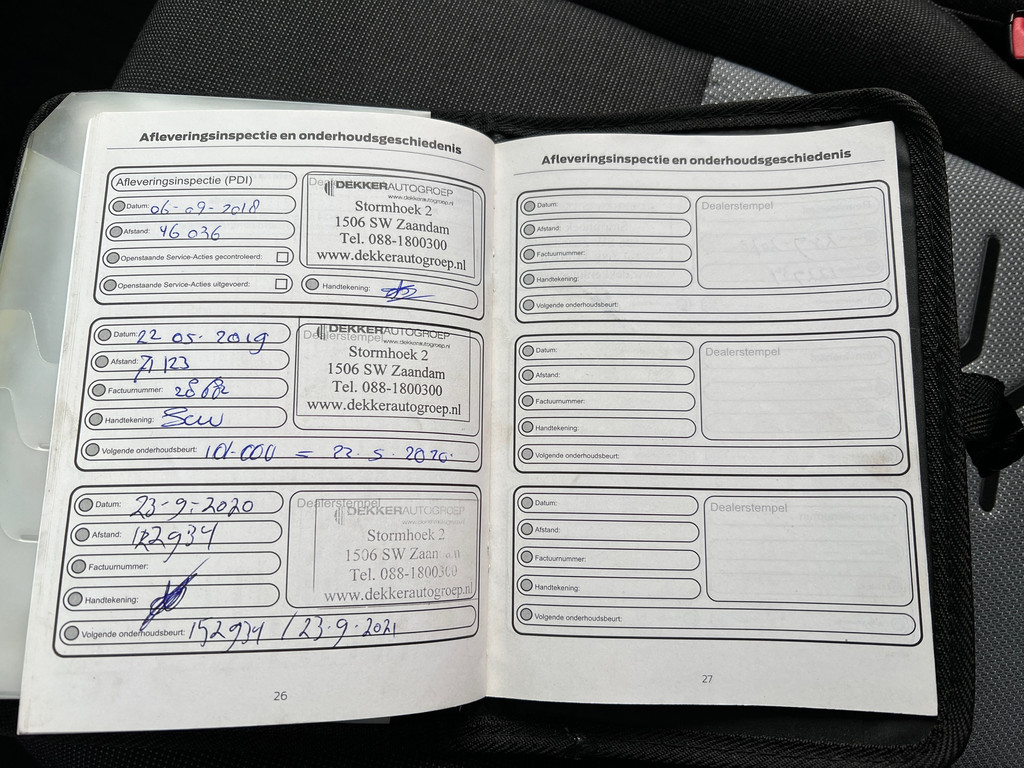 Afleveringsinspectie en onderhoudsgeschiedenis
Afleveringsinspectie (PDI)
Datum: 06-09-2018
Afstand: 46 036
Openstaande Service-Acties gecontroleerd:
Openstaande Service-Acties uitgevoerd:
DEKKERAUTOGROEP
www.dekkerautogroep.nl
Stormhoek 2
1506 SW Zaandam
Tel. 088-1800300
www.dekkerautogroep.nl
Handtekening:
Datum: 22 05. 2019
Afstand: 71 123
Factuurnummer:
Handtekening:
Dealerstempel
DEKKERAUTOGROEP
www.dekkerautogroep.nl
Stormhoek 2
1506 SW Zaandam
Tel. 088-1800300
www.dekkerautogroep.nl
Volgende onderhoudsbeurt: 101.000 = 22.5.2020.
Datum: 23-9-2020
Afstand: 122934
Factuurnummer:
Handtekening:
Dealerstempel
DEKKERAUTOGROEP
Stormhoek 2
1506 SW Zaandam
Tel. 088-1800300
www.dekkerautogroep.nl
Volgende onderhoudsbeurt: 152934 / 23-9-2021
26
Afleveringsinspectie en onderhoudsgeschiedenis
Datum:
Afstand:
Factuurnummer:
Handtekening:
Dealerstempel
Volgende onderhoudsbeurt:
Datum:
Afstand:
Factuurnummer:
Handtekening:
Dealerstempel
Volgende onderhoudsbeurt:
Datum:
Afstand:
Factuurnummer:
Handtekening:
Dealerstempel
Volgende onderhoudsbeurt:
27